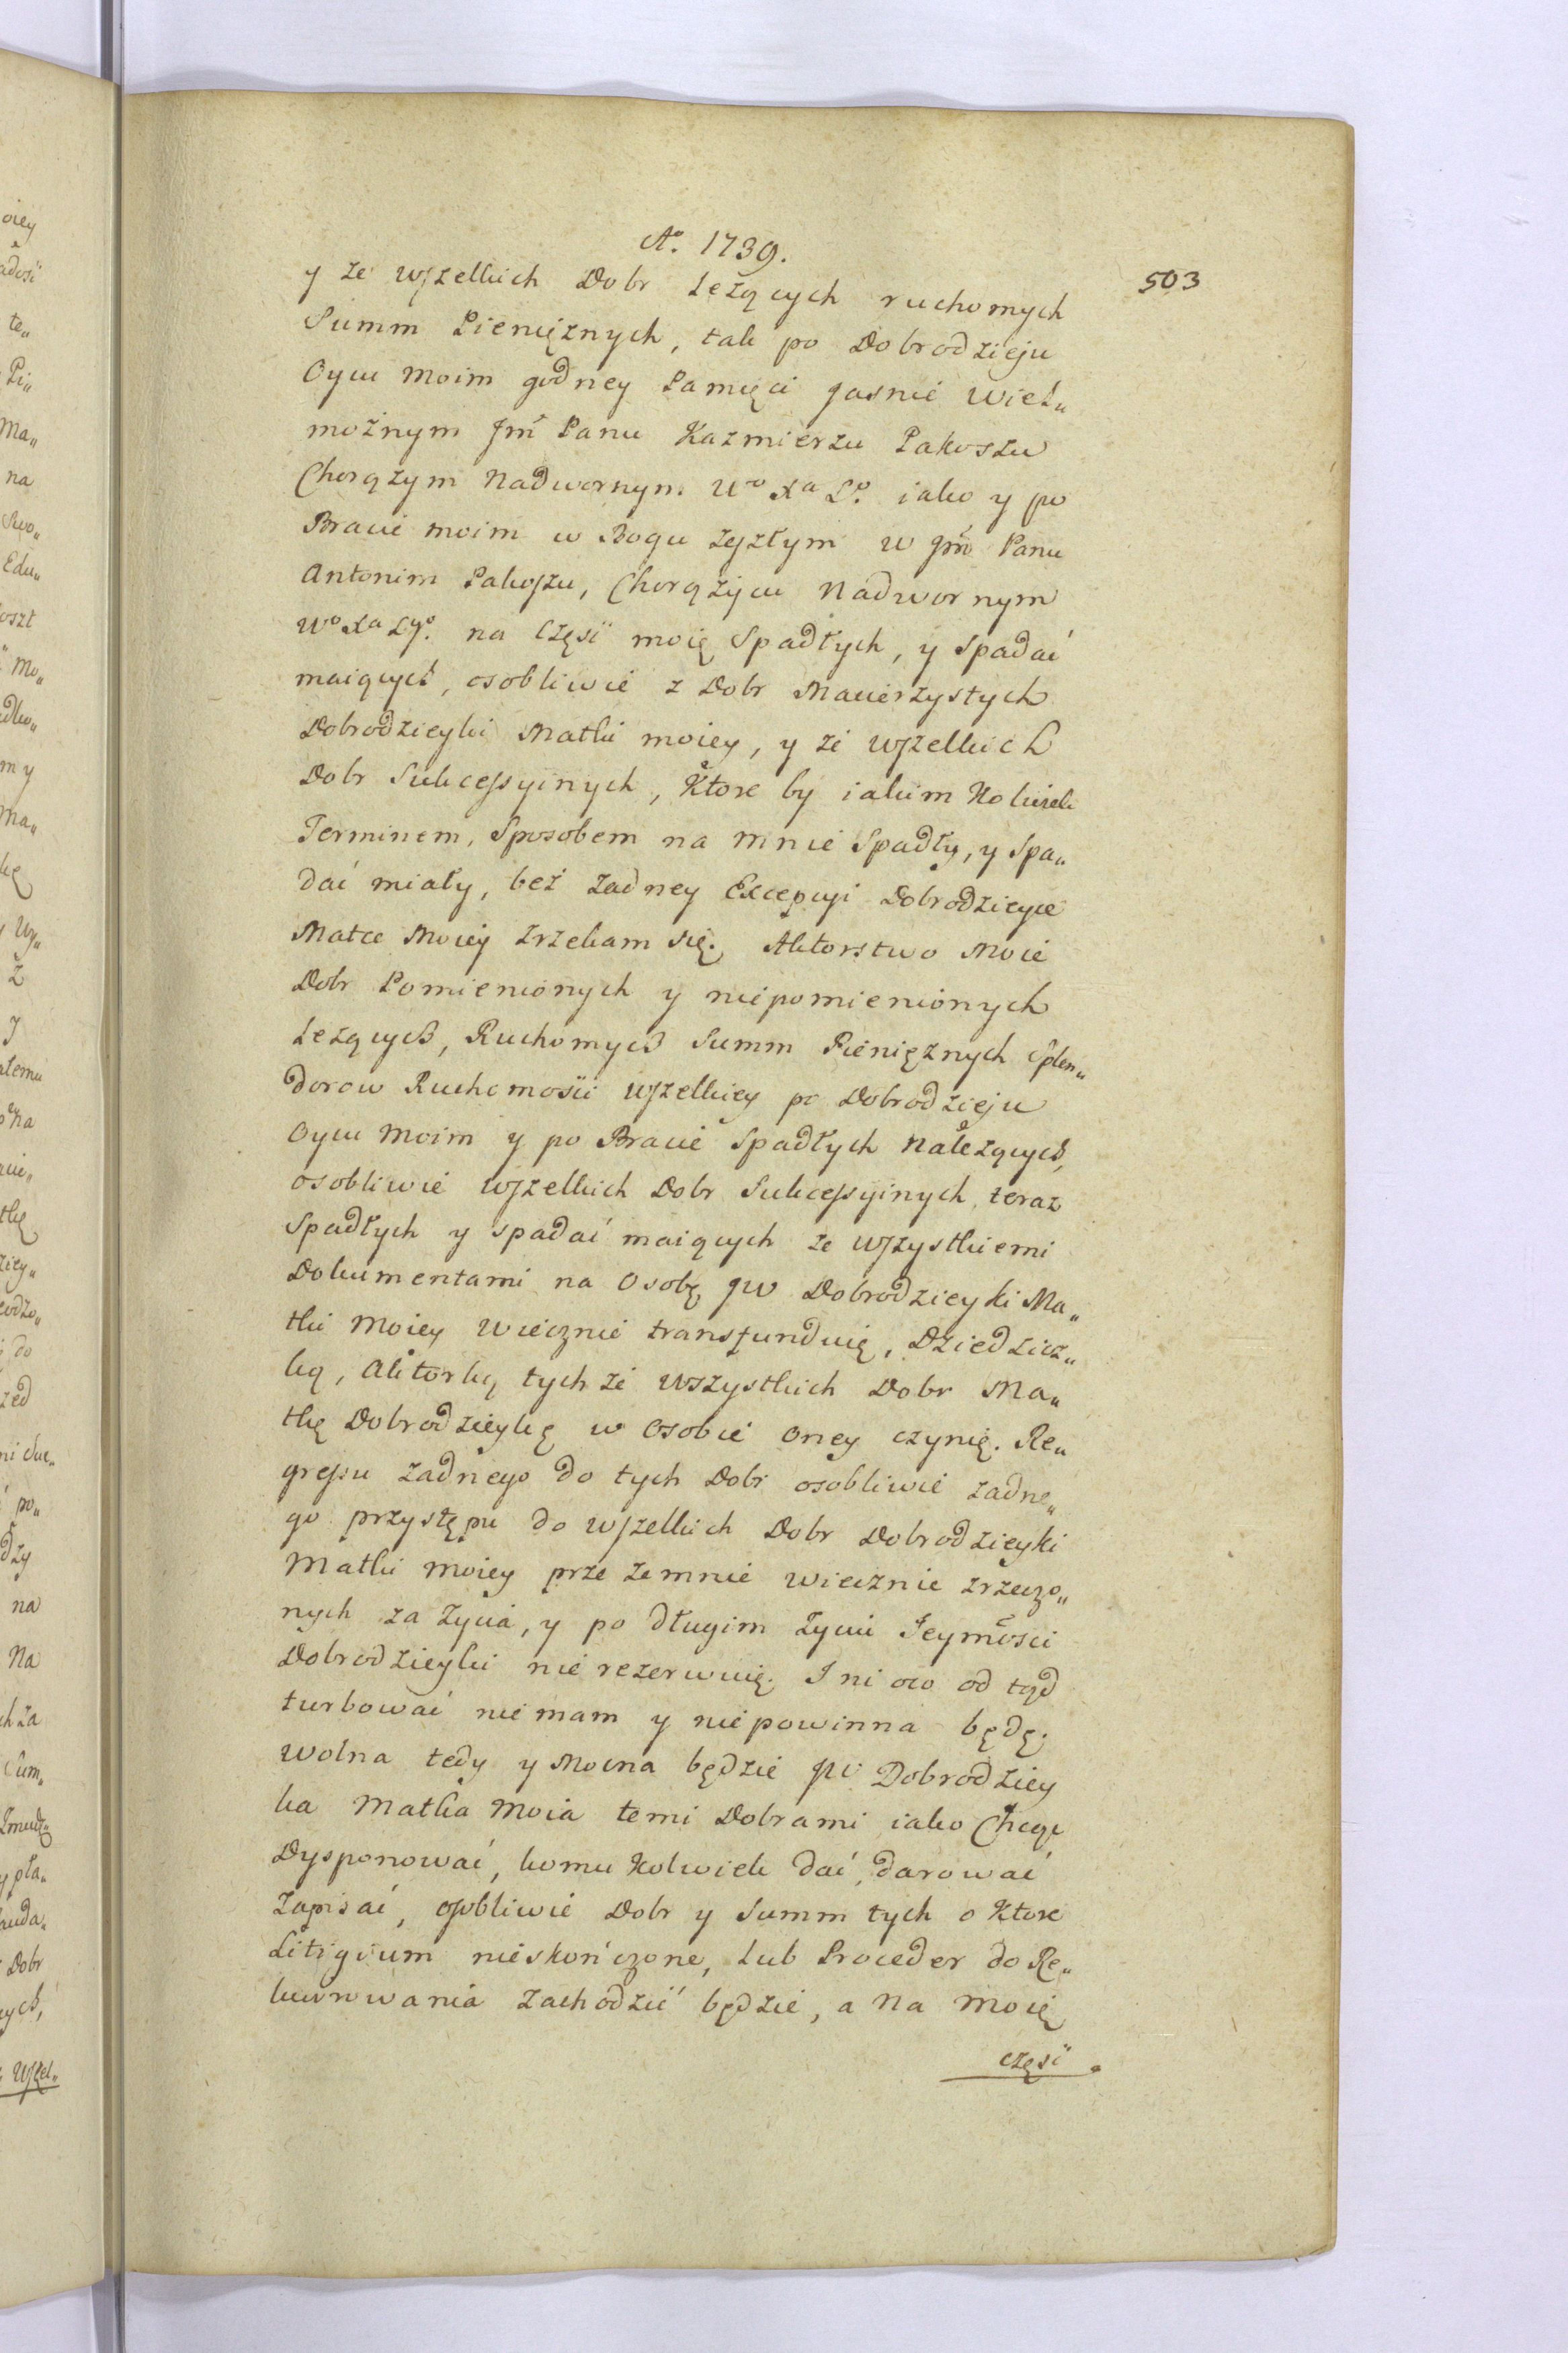 Aº. 1739.
503
y ze wszelkich Dobr Leżących ruchomych
Summ Pieniężnych, tak po Dobrodzieju
Oycu moim godney Pamięci Jasnie Wiel„
możnym Jm̃ Panu Kazmierzu Pakoszu
Chorążym Nadwornym Wº Xª Lº. iako y po
Bracie moim w Bogu zeszłym W Jm̃ Panu
Antonim Pakoszu, Chorążycu Nadwornym
Wº Xª Lgº. na Częsć moię Spadłych, y Spadać
maiących, osobliwie z Dobr Macierzystych
Dobrodzieyki Matki moiey, y ze wszelkich
Dobr Sukcessyinych, Ktore by iakim Kolwiek
Terminem, Sposobem na mnie Spadły, y Spa„
dać miały, bez żadney Excepcyi Dobrodzieyce
Matce Moiey zrzekam się. Aktorstwo Moie
Dobr Pomienionych y niepomienionych
Leżących, Ruchomych Summ Pieniężnych Splen„
dorow Ruchomości wszelkiey po Dobrodzieju
Oycu Moim y po Bracie Spadłych Należących,
osobliwie wszelkich Dobr Sukcessyinych, teraz
Spadłych y spadać maiących ze wszystkiemi
Dokumentami na Osobę JW Dobrodzieyki Ma„
tki Moiey wiecznie transfunduię, Dziedzicz„
ką, Aktorką tych że wszystkich Dobr Ma„
tkę Dobrodzieykę w Osobie oney czynię. Re„
gressu żadnego do tych Dobr osobliwie żadne„
go przystępu do wszelkich Dobr Dobrodzieyki
Matki moiey prze zemnie wiecznie zrzeczo„
nych za życia, y po długim życiu Jeymości
Dobrodzieyki nie rezerwuię. I ni oco od tąd
turbować nie mam y nie powinna będę.
Wolna tedy y Mocna będzie JW Dobrodziey
ka Matka Moia temi Dobrami iako Chcąc
Dysponować, komu Kolwiek dać, darować
Zapisać, osobliwie Dobr y Summ tych o Ktore
Litigium nieskończone, lub Proceder do Re„
kurowania zachodzić będzie, a na Moię
częsć